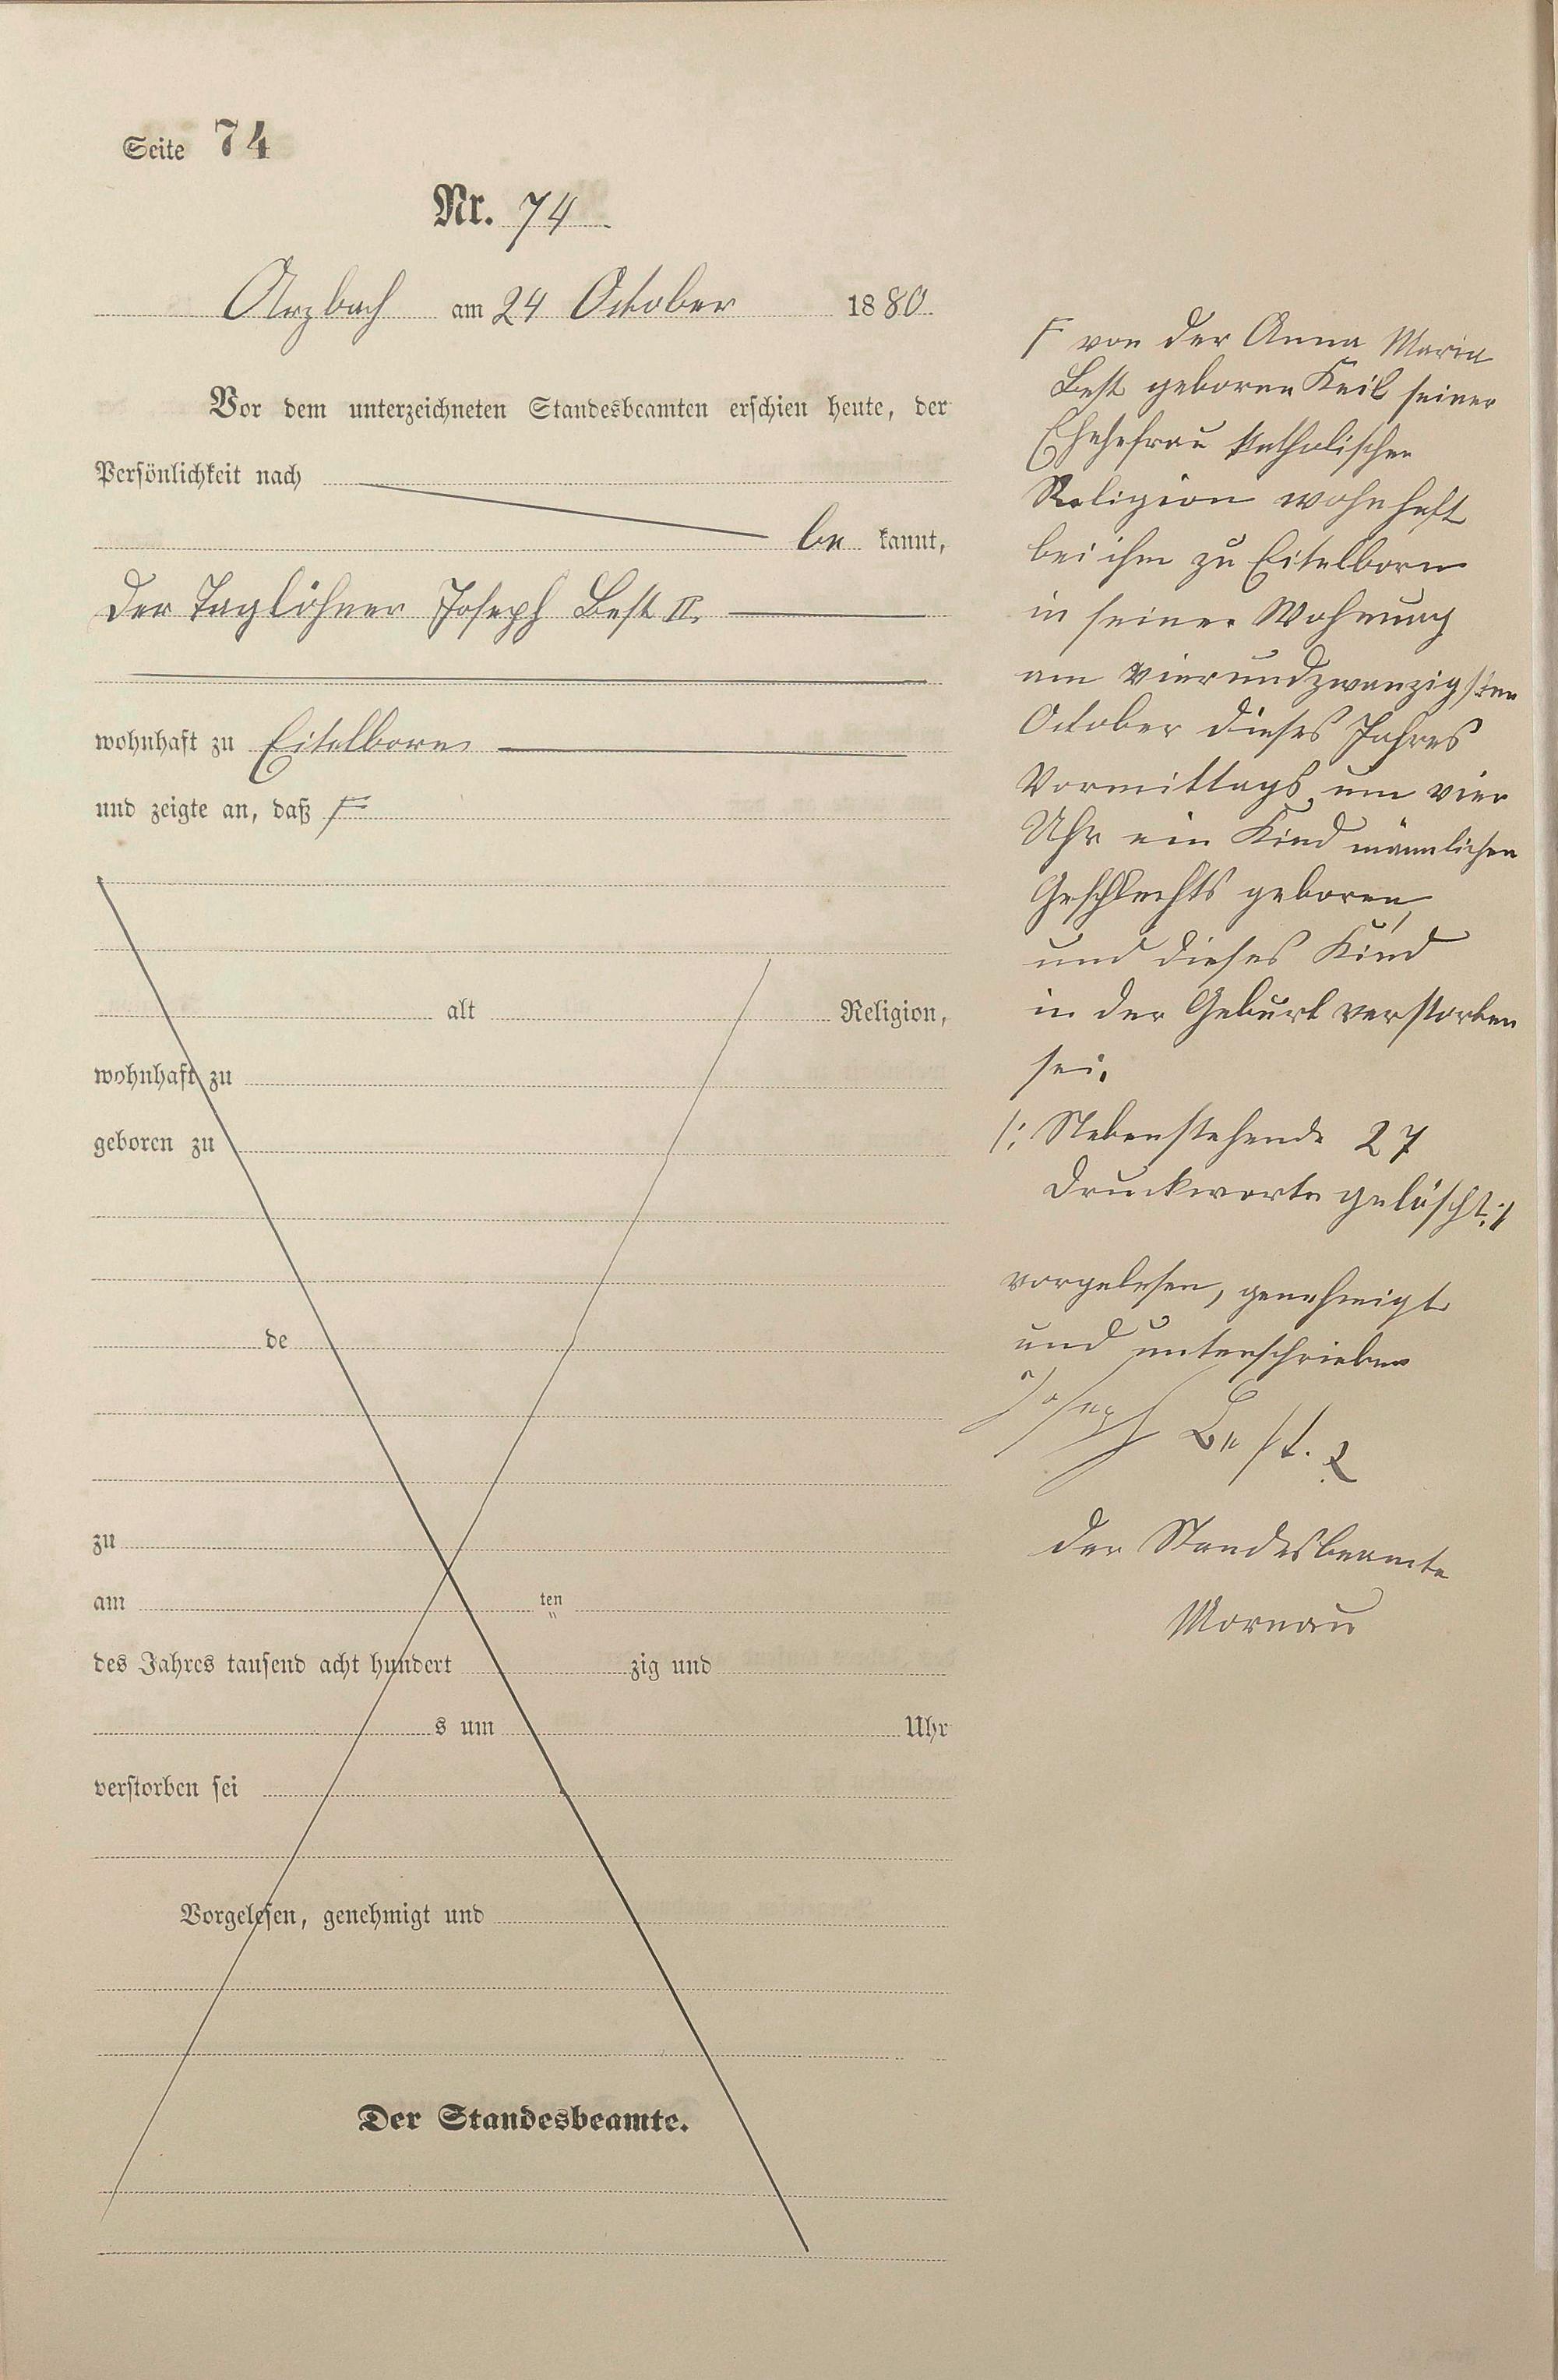 Seite 74
Nr. 74
Arzbach am 24 October 1880.
Vor dem unterzeichneten Standesbeamten erschien heute, der
Persönlichkeit nach
be kannt,
der Taglöhner Joseph Best II.
wohnhaft zu Eitelborn
und zeigte an, daß F
alt Religion,
wohnhaft zu
geboren zu
de
zu
am ten
des Jahres tausend acht hundert zig und
s um Uhr
verstorben sei
Vorgelesen, genehmigt und
Der Standesbeamte.
F von der Anna Maria
Best geborene Keil seiner
Ehehefrau katholischer
Religion wohnhaft
bei ihm zu Eitelborn
in seiner Wohnung
am vierundzwanzigsten
October dieses Jahres
Vormittags um vier
Uhr ein Kind männlichen
Geschlechts geboren,
und dieses Kind
in der Geburt verstorben
sei.
/: Nebenstehende 27
Druckworte gelöscht :/
vorgelesen, genehmigt
und unterschrieben
Joseph Best. 2
der Standesbeamte